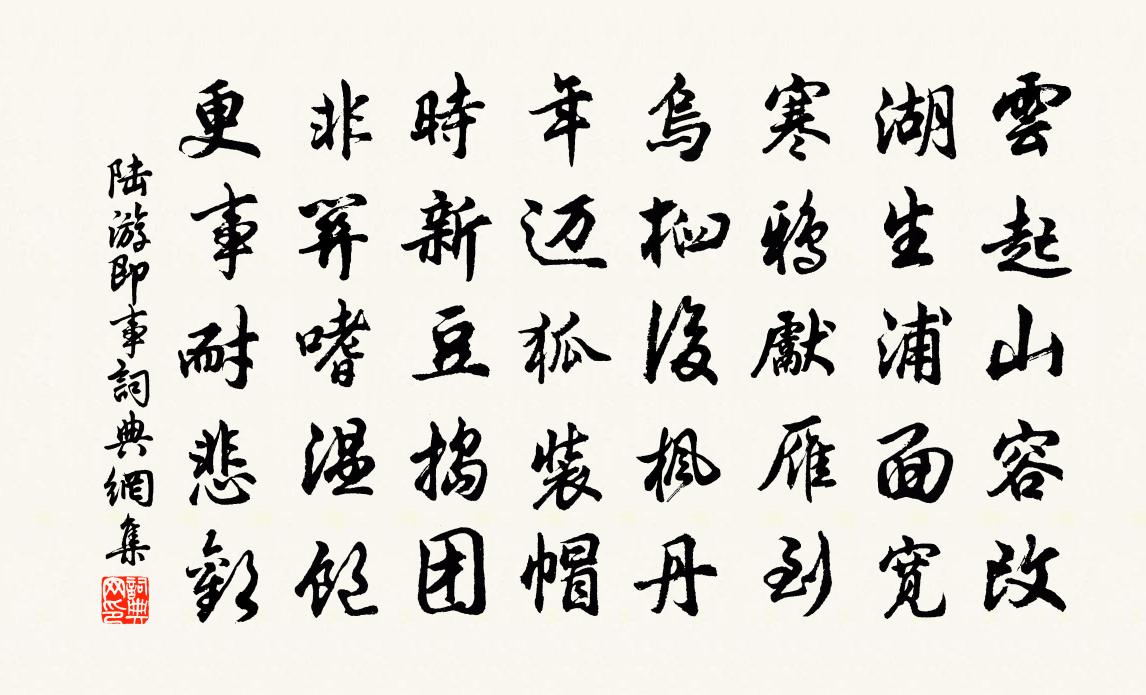 雲起山容改
湖生浦面寬
寒鴉獻雁到
烏桕後楓丹
年迈狐裝帽
時新豆搗团
非關嗜温飽
更事耐悲歡
陸游即事詞典網集
詞典网印